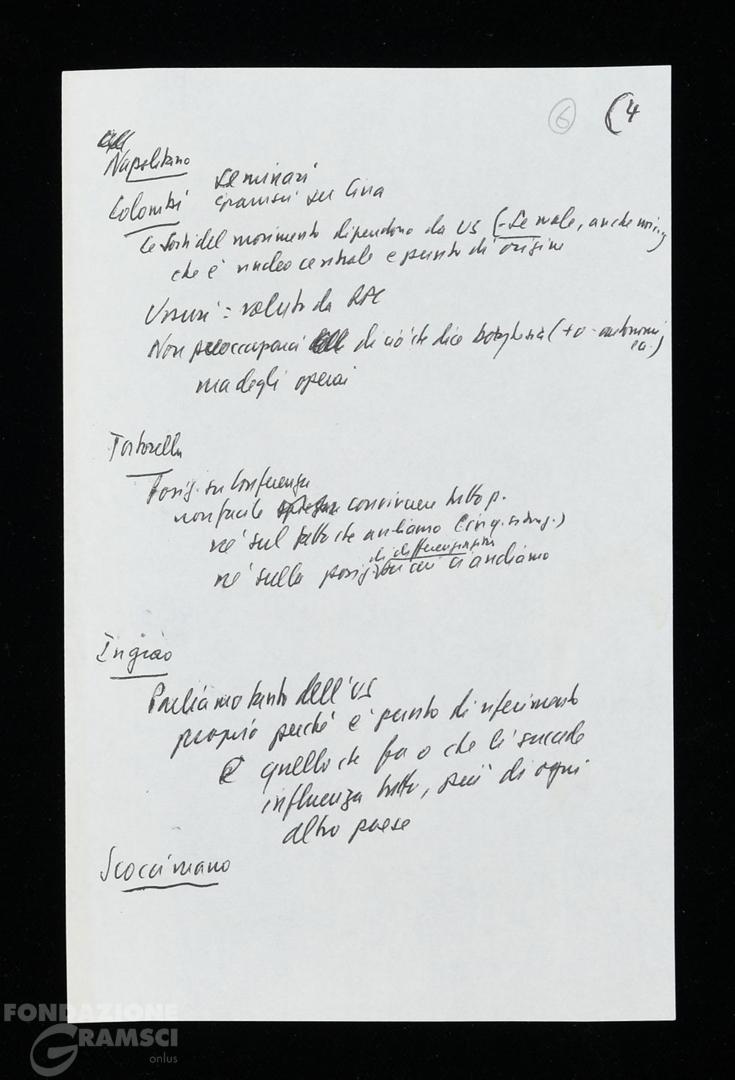 6 (4
Napolitano
Colombi seminari
Gramsci su Cina
Le sorti del movimento dipendono da US (-se male, anche noi,
che è nucleo centrale e punto di origine
: valuto da
Non preoccuparci di ciò che dice borghesia (+ o - autonomi
ecc.)
ma degli operai
Tortorella
Posiz. su Conferenza
non facile convincere tutto p.
né sul fatto che andiamo
di differenziazione
né sulla posiz. con cui ci andiamo
Ingrao
Parliamo tanto dell'US
proprio perché è punto di riferimento
E quello che fa o che lì succede
influenza tutto, più di ogni
altro paese
Scoccimarro
FONDAZIONE
GRAMSCI
onlus